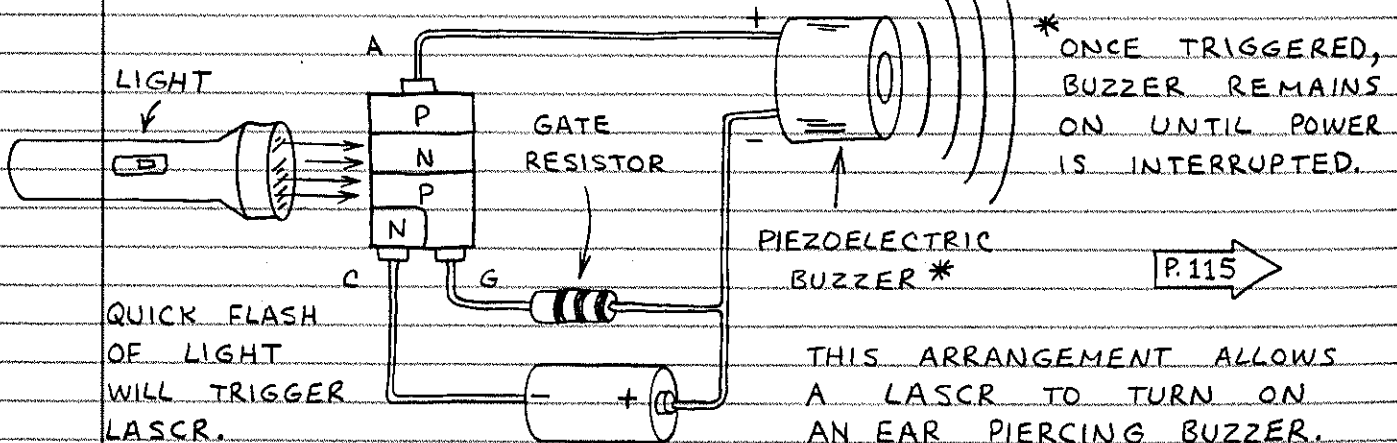 LIGHT
A
P
N
P
N
C
G
GATE
RESISTOR
+
-
PIEZOELECTRIC
BUZZER *
* ONCE TRIGGERED,
BUZZER REMAINS
ON UNTIL POWER
IS INTERRUPTED.
P. 115
QUICK FLASH
OF LIGHT
WILL TRIGGER
LASCR.
- +
THIS ARRANGEMENT ALLOWS
A LASCR TO TURN ON
AN EAR PIERCING BUZZER.